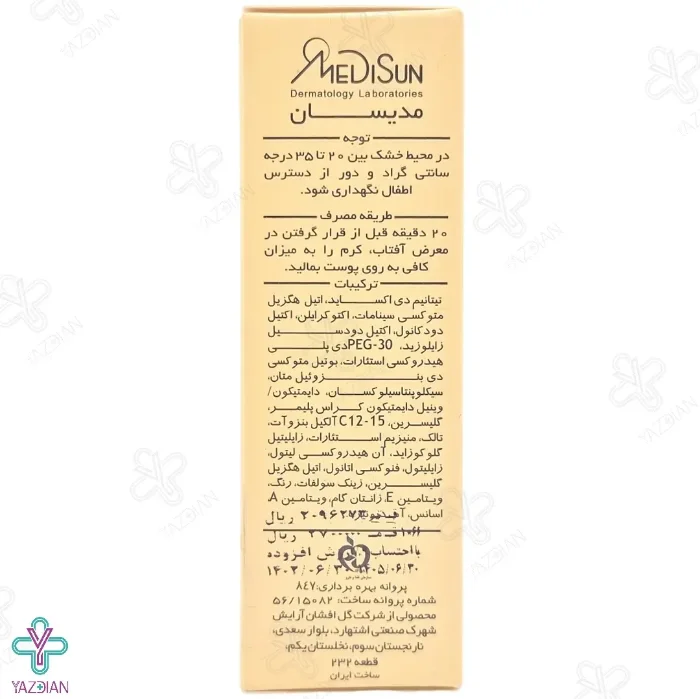 MEDISUN
Dermatology Laboratories
مدیسان
توجه
در محیط خشک بین ۲۰ تا ۳۵ درجه
سانتی گراد و دور از دسترس
اطفال نگهداری شود.
طریقه مصرف
۲۰ دقیقه قبل از قرار گرفتن در
معرض آفتاب، کرم را به میزان
کافی به روی پوست بمالید.
ترکیبات
تیتانیم دی اکساید، اتیل هگزیل
متوکسی سینامات، اکتوکرایلن، اکتیل
دودکانول، اکتیل دودسیل
زایلوزید، PEG-30 دی پلی
هیدروکسی استئارات، بوتیل متوکسی
دی بنزوئیل متان،
سیکلوپنتاسیلوکسان، دایمتیکون/
وینیل دایمتیکون کراس پلیمر،
گلیسرین، C12-15 آلکیل بنزوآت،
تالک، منیزیم استئارات، زایلیتیل
گلوکوزاید، آن هیدروکسی لیتول،
زایلیتول، فنوکسی اتانول، اتیل هگزیل
گلیسرین، زینک سولفات، رنگ،
ویتامین E، زانتان گام، ویتامین A،
اسانس،
۲۰۹۶۲۷۳ ریال
ریال
بااحتساب ارزش افزوده
۱۴۰۲/۰۶/۳۰ ۱۴۰۵/۰۶/۳۰
پروانه بهره برداری: ۸۴۷
شماره پروانه ساخت: ۵۶/۱۵۰۸۲
محصولی از شرکت گل افشان آرایش
شهرک صنعتی اشتهارد، بلوار سعدی،
نارنجستان سوم، نخلستان یکم،
قطعه ۲۳۲
ساخت ایران
YAZDIAN